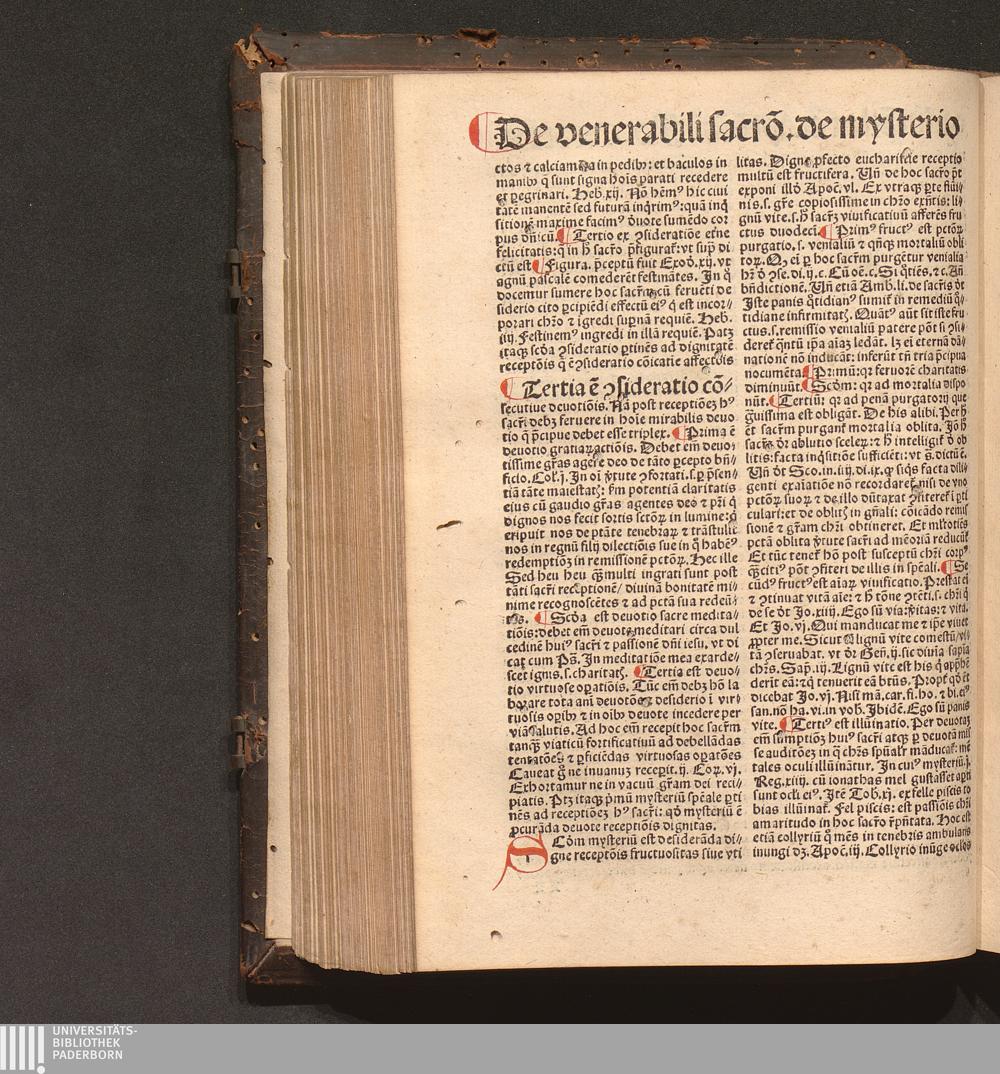 De venerabili sacrõ. de mysterio
ctos ⁊ calciamẽta in pedibꝰ: et baculos in
manibꝰ q̃ sunt signa hoĩs parati recedere
et ꝑegrinari. Heb. xij. Nõ hẽmꝰ hic ciui
tatẽ manentẽ sed futurã inq̃rimꝰ: quã inq̃
sitionẽ maxime facimꝰ ꝺuote sumẽdo cor
pus dñicũ. Tertio ex ↄsideratiõe efne
felicitatis: q̃ in h̃ sacr̃o p̃figurať: vt sup̃ di
ctũ est Figura. p̃ceptũ fuit Exod̃. xij. vt
agnũ pascalẽ comederẽt festinãtes. In q̃
docemur sumere hoc sacr̃m cũ feruẽti de
siderio cito ꝑcipiẽdi effectũ eiꝰ q̃ est incor⸗
porari chr̃o ⁊ igredi sup̃nã requiẽ. Heb.
iiij. Festinemꝰ ingredi in illã requiẽ. Patꝫ
itaqꝫ scd̃a ↄsideratio ꝑtinẽs ad dignitatẽ
receptõis q̃ ẽ ↄsideratio cõicatiẽ affectõis
Tertia ẽ ↄsideratio cõ⸗
secutiue deuotiõis. Nã post receptiõeꝫ hꝰ
sacr̃i debꝫ feruere in hoĩe mirabilis deuo
tio q̃ p̃cipue debet esse triplex. Prima ẽ
deuotio gratiaꝝ actiõis. Debet em̃ deuo⸗
tissime gr̃as agere deo de tãto ꝑcepto bñ⸗
ficio. Col. j. In oĩ v̓tute ↄfortati. s. ꝑ p̃sen⸗
tiã tãte maiestatꝭ: ẜm potentiã claritatis
eius cũ gaudio gr̃as agentes deo ⁊ pr̃i q̃
dignos nos fecit sortis sctõꝝ in lumine: q̃
eripuit nos de ptãte tenebraꝝ ⁊ trãstulit
nos in regnũ filij dilectiõis sue in q̃ habẽꝰ
redemptiõꝫ in remissionẽ pctõꝝ. Hec ille
Sed heu heu q̃ꝫ multi ingrati sunt post
tãti sacr̃i receptionẽ / diuinã bonitatẽ mi⸗
nime recognoscẽtes ⁊ ad pctã sua redeũ⸗
tes. Scd̃a est deuotio sacre medita⸗
tiõis: debet em̃ deuote meditari circa dul
cedinẽ huiꝰ sacr̃i ⁊ passionẽ dñi iesu. vt di
cat̃ cum Pš. In meditatiõe mea exarde⸗
scet ignis. s. charitatꝭ. Tertia est deuo⸗
tio virtuose oꝑatiõis. Tũc em̃ debꝫ hõ la
borare tota ani deuotõe ⁊ desiderio ĩ vir⸗
tuosis oꝑibꝰ ⁊ in oĩbꝰ deuote incedere per
viã salutis. Ad hoc em̃ recepit hoc sacr̃m
tanq̃ꝫ viaticũ fortificatiuũ ad debellãdas
tentatões ⁊ ꝑficiẽdas virtuosas oꝑatões
Caueat g̊ ne inuanuꝫ recepit. ij. Coꝝ. vj.
Exhortamur ne in vacuũ gr̃am dei reci⸗
piatis. Ptꝫ itaqꝫ p̃mũ mysteriũ spẽale ꝑti
nẽs ad receptiõeꝫ hꝰ sacr̃i: qd̃ mysteriũ ẽ
ꝓcurãda deuote receptiõis dignitas.
SCd̃m mysteriũ est desiderãda di⸗
gne receptõis fructuositas siue vti
litas. Digne ꝓfecto eucharistie receptio
multũ est fructifera. Uñ de hoc sacr̃o põt
exponi illd̃ Apoc̃. vl. Ex vtraqꝫ ꝑte flũi⸗
nis. s. gr̃e copiosissime in chr̃o exñtis: li⸗
gnũ vite. s. h̃ sacr̃ꝫ viuificatiuũ afferẽs fru
ctus duodecĩ. Primꝰ fructꝰ est pctõꝝ
purgatio. s. venialiũ ⁊ qñqꝫ mortaliũ obli
toꝝ. Qꝫ ei ꝑ hoc sacr̃m purgẽtur venialia
hr̃ ꝺ ↄse. di. ij. c. Cũ oẽ. c. Si q̃tiẽs. ⁊ c. Añ
bñdictionẽ. Uñ etiã Amb. li. de sacr̃is ꝺt
Iste panis q̃tidianꝰ sumiť in remediũ q̃⸗
tidiane infirmitatꝭ. Quãtꝰ aũt sit iste fru
ctus. s. remissio venialiũ patere põt si ↄsi⸗
dereť q̃ntũ ip̃a aĩaꝫ ledãt. lꝫ ei eternã dã⸗
nationẽ nõ inducãt: inferũt tñ tria p̃cipua
nocumẽta. Primũ: qꝛ feruorẽ charitatis
diminuũt. Scd̃m: qꝛ ad mortalia dispo
nũt. Tertiũ: qꝛ ad penã purgatorij que
g̃uissima est obligãt. De his alibi. Per h̃
ẽt sacr̃m purganť mortalia oblita. Iõ h̃
sacr̃m ꝺr ablutio sceleꝝ: ⁊ h̃ intelligiť ꝺ ob
litis: facta inq̃sitiõe sufficiẽti: vt s̃. dictũ ẽ.
Uñ ꝺt Sco. in. iiij. di. ix. ꝙ siq̃s facta dili⸗
genti exaĩatiõe nõ recordareť nisi de vno
pctõꝝ suoꝝ ⁊ de illo dũtaxat ↄtereť ĩ ꝑti
culari: et de oblitꝭ in gñali: cõicãdo remis
sionẽ ⁊ gr̃am chr̃i obtineret. Et mltotiẽs
pctã oblita v̓tute sacr̃i ad mẽoriã reducũť
Et tũc teneť hõ post susceptũ chr̃i corpꝰ
q̃ꝫ citiꝰ põt ↄfiteri de illis in spẽali. Se
cũdꝰ fructꝰ est aĩaꝝ viuificatio. Prestat ei
⁊ ↄtinuat vitã aĩe: ⁊ h̃ rõne ↄtẽti. s. chr̃i q̃
de se ꝺt Jo. xiiij. Ego sũ via: v̓itas: ⁊ vita.
Et Jo. vj. Qui manducat me ⁊ ip̃e viuet
ꝓpter me. Sicut ei lignũ vite comestũ / vi⸗
tã ↄseruabat. vt ꝺr Geñ. ij. sic diuia sapia
chr̃s. Sap̃. iij. Lignũ vite est his q̃ apphẽ
derĩt eã: ⁊ q̃ tenuerit eã btũs. Propť qd̃ ẽt
dicebat Jo. vj. Nisi mã. car. fi. ho. ⁊ bi. eiꝰ
san. nõ ha. vi. in vob̃. Ibidẽ. Ego sũ panis
vite. Tertiꝰ est illũinatio. Per deuotaꝫ
em̃ sumptiõꝫ huiꝰ sacr̃i atqꝫ ꝑ deuotã mis
se auditõeꝫ in q̃ chr̃s spũalr̃ mãducať: mẽ
tales oculi illũinãtur. In cuiꝰ mysteriũ. j.
Reg. xiiij. cũ ionathas mel gustasset aꝑti
sunt ocli eiꝰ. Jtẽ Tob. xj. ex felle piscis to
bias illũinať. Fel piscis: est passiõis chr̃i
amaritudo in hoc sacr̃o rep̃ñtata. Hoc est
etiã collyriũ q̃ mẽs in tenebris ambulans
inungi dꝫ. Apoc̃. iij. Collyrio inũge oclos
UNIVERSITÄTS-
BIBLIOTHEK
PADERBORN